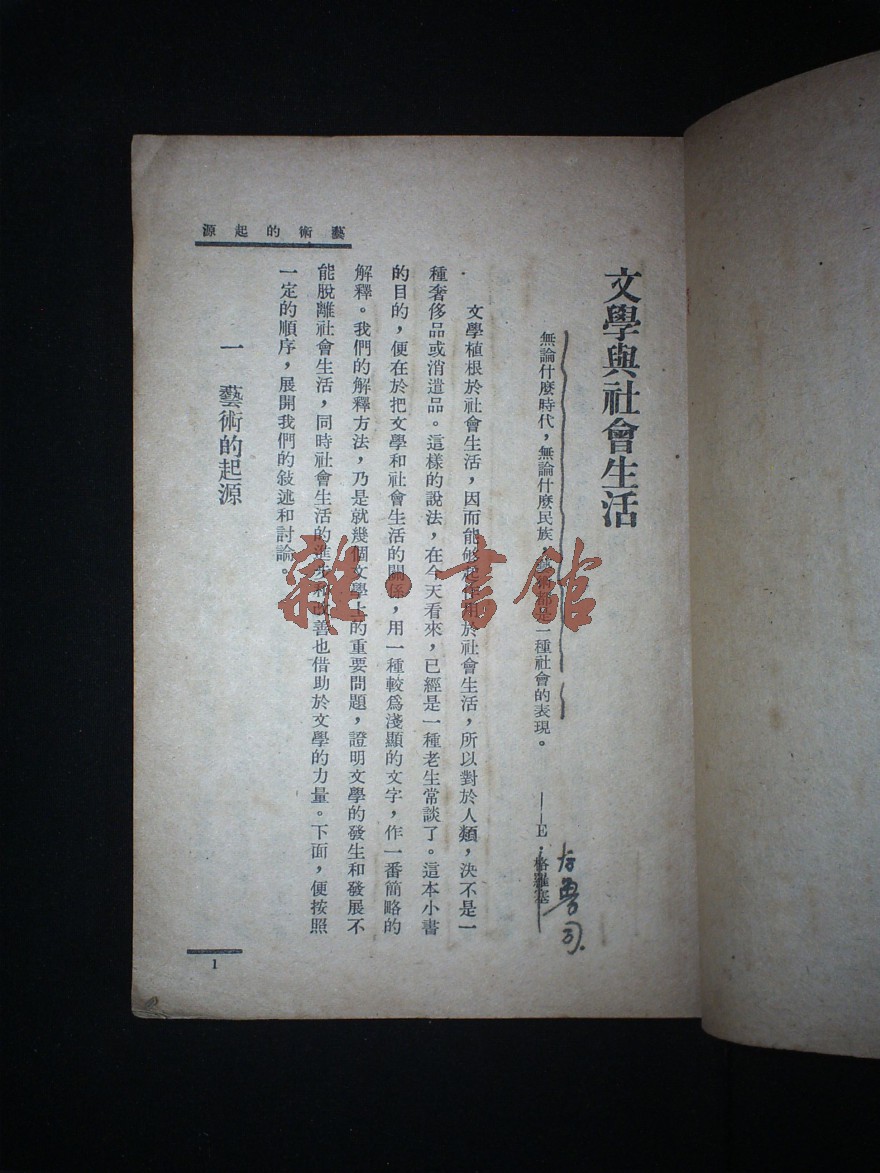 文學與社會生活
無論什麼時代,無論什麼民族,藝術都是一種社會的表現。
——E·格羅塞
文學植根於社會生活,因而能够起作用於社會生活,所以對於人類,決不是一
種奢侈品或消遣品。這樣的說法,在今天看來,已經是一種老生常談了。這本小書
的目的,便在於把文學和社會生活的關係,用一種較爲淺顯的文字,作一番簡略的
解釋。我們的解釋方法,乃是就幾個文學上的重要問題,證明文學的發生和發展不
能脫離社會生活,同時社會生活的進步和改善也借助於文學的力量。下面,便按照
一定的順序,展開我們的敍述和討論。
一 藝術的起源
藝術的起源
1
雜·書館